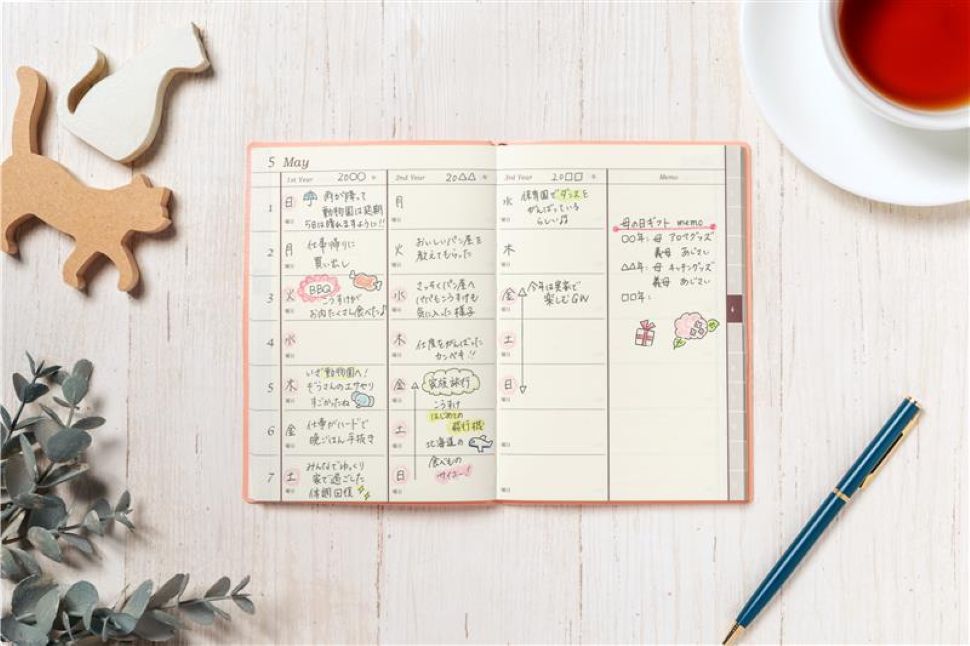 5 May
1st Year 20○○ 年
2nd Year 20△△ 年
3rd Year 20□□ 年
Memo
1
日
曜日
雨が降って
動物園は延期
5日は晴れますように!!
月
曜日
水
曜日
保育園でダンスを
がんばっている
らしい♫
2
月
曜日
仕事帰りに
買い出し
火
曜日
おいしいパン屋を
教えてもらった
木
曜日
3
火
曜日
BBQ
こうすけが
お肉たくさん食べた♪
水
曜日
さっそくパン屋へ
パパもこうすけも
気に入った様子
金
曜日
今年は実家で
楽しむGW
4
水
曜日
木
曜日
仕度をがんばった
カンペキ!!
土
曜日
5
木
曜日
いざ動物園へ!
ぞうさんのエサやり
すごかったね
金
曜日
家族旅行
こうすけ
日
曜日
6
金
曜日
仕事がハードで
晩ごはん手抜き
土
曜日
はじめての
飛行機
北海道の
曜日
7
土
曜日
みんなでゆっくり
家で過ごした
体調回復
日
曜日
食べもの
サイコー!
曜日
母の日ギフト memo
○○年:母 アロマグッズ
義母 あじさい
△△年:母 キッチングッズ
義母 あじさい
□□年: